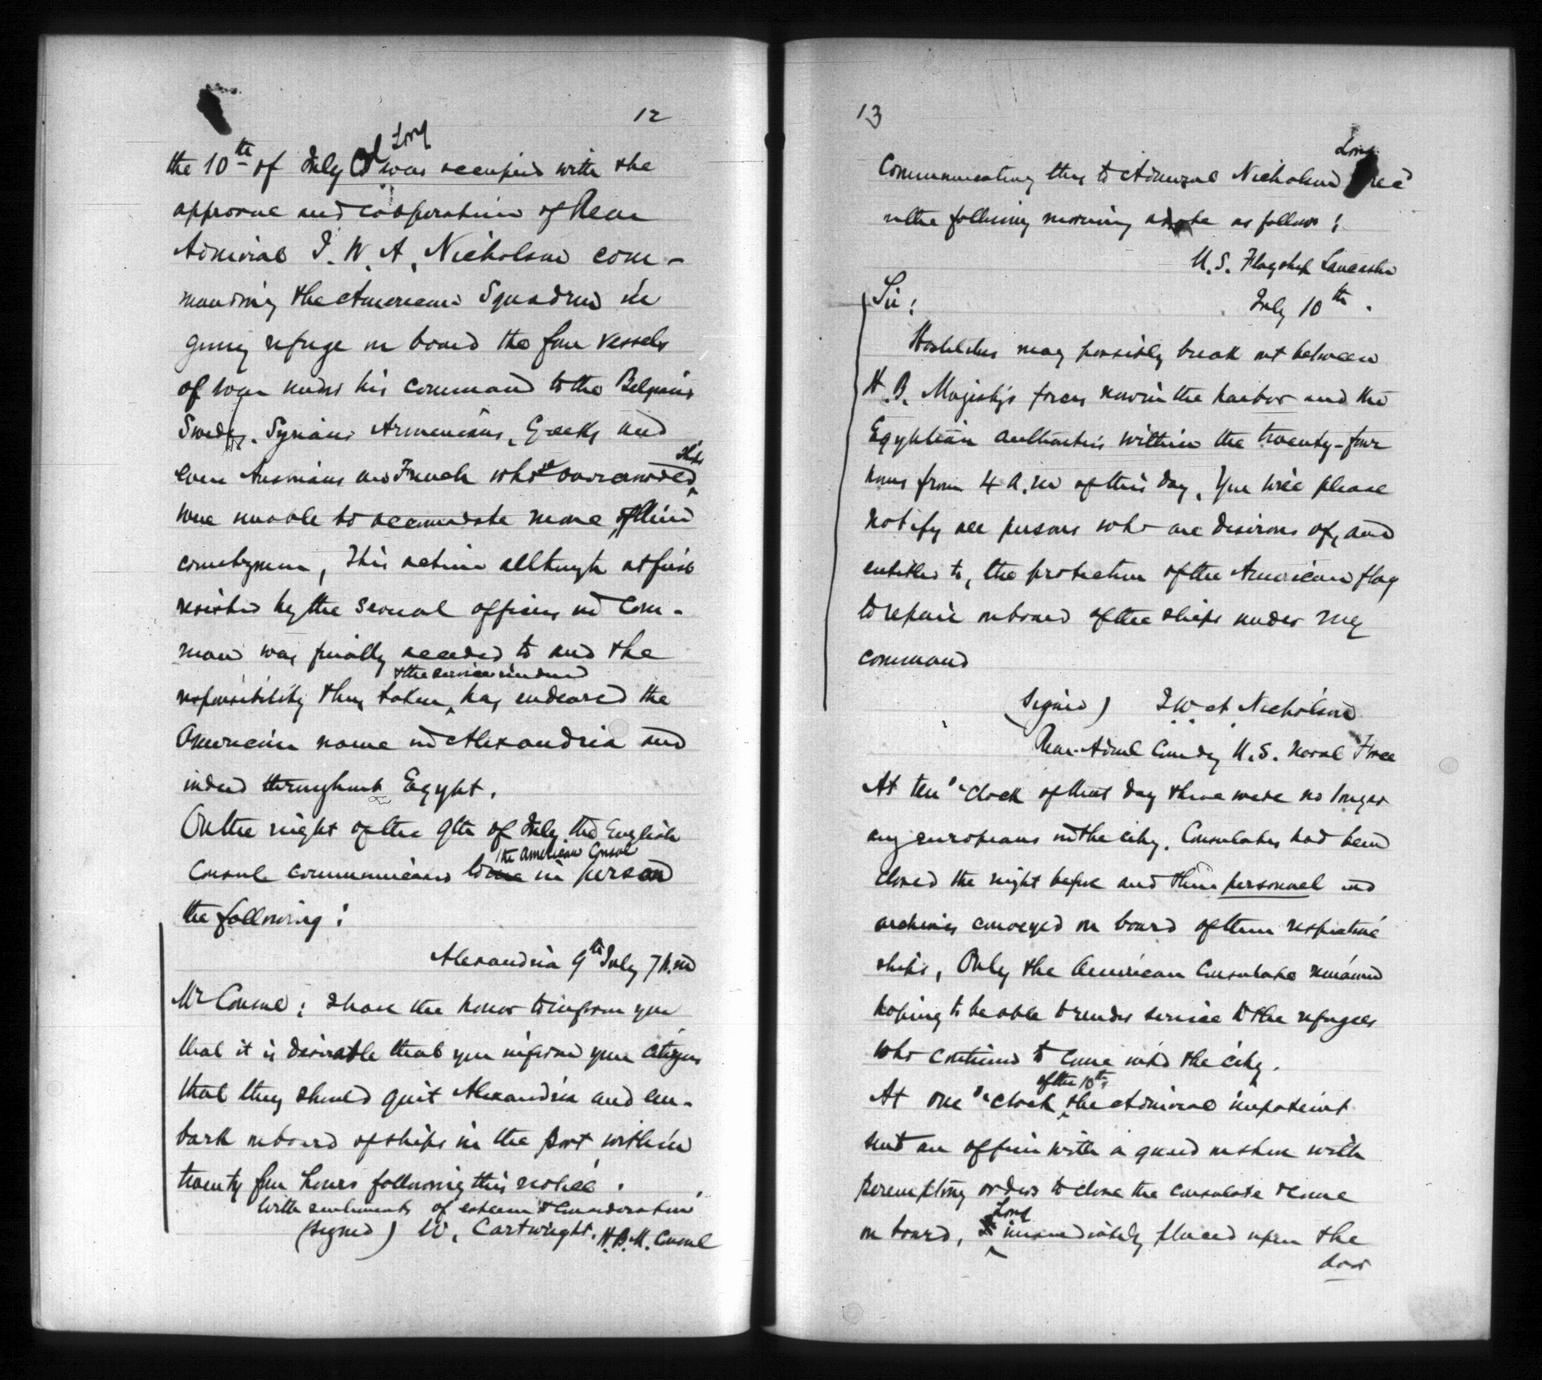 12
the 10th of July Col Long was occupied with the
approval and coöperation of Rear
Admiral J. W. A. Nicholson com-
manding the American Squadron in
giving refuge on board the four vessels
of war under his command to the Belgians
Swedes, Syrians Armenians, Greeks and
even Austrians and French whose overcrowded ships
were unable to accomodate more of their
countrymen, This action allthough at first
resisted by the several officers in Com-
mand was finally acceded to and the
responsibility thus taken & the service rendered has endeared the
American name in Alexandria and
indeed throughout Egypt.
On the night of the 9th of July the English
Consul communicated to the American Consul in person
the following:
Alexandria 9th July 7 A.M
Mr Consul: I have the honor to inform you
that it is desirable that you inform your citizens
that they should quit Alexandria and em-
bark on board of ships in the port within
twenty four hours following this notice.
With sentiments of esteem & consideration
(signed) W. Cartwright. H.B.M. Consul
13
Communicating this to Admiral Nicholson Long rec'd
in the following morning a note as follows:
U.S. Flagship Lancaster
July 10th.
Sir:
Hostilities may possibly break out between
H. B. Majesty's forces now in the harbor and the
Egyptian authorities within the twenty-four
hours from 4 A.M of this day. You will please
notify all persons who are desirous of, and
entitled to, the protection of the American flag
to repair on board of the ships under my
command
(signed) J W A Nicholson
Rear-Adml Comdg U.S. Naval Force
At ten o'clock of that day there were no longer
any europeans in the city. Consulates had been
closed the night before and their personnel and
archives conveyed on board of their respective
ships, Only the American Consulate remained
hoping to be able to render service to the refugees
who continued to come into the city.
At one o'clock of the 10th, the Admiral impatient
sent an officer with a guard on shore with
peremptory orders to close the consulate & come
on board, Long immediately placed upon the
door